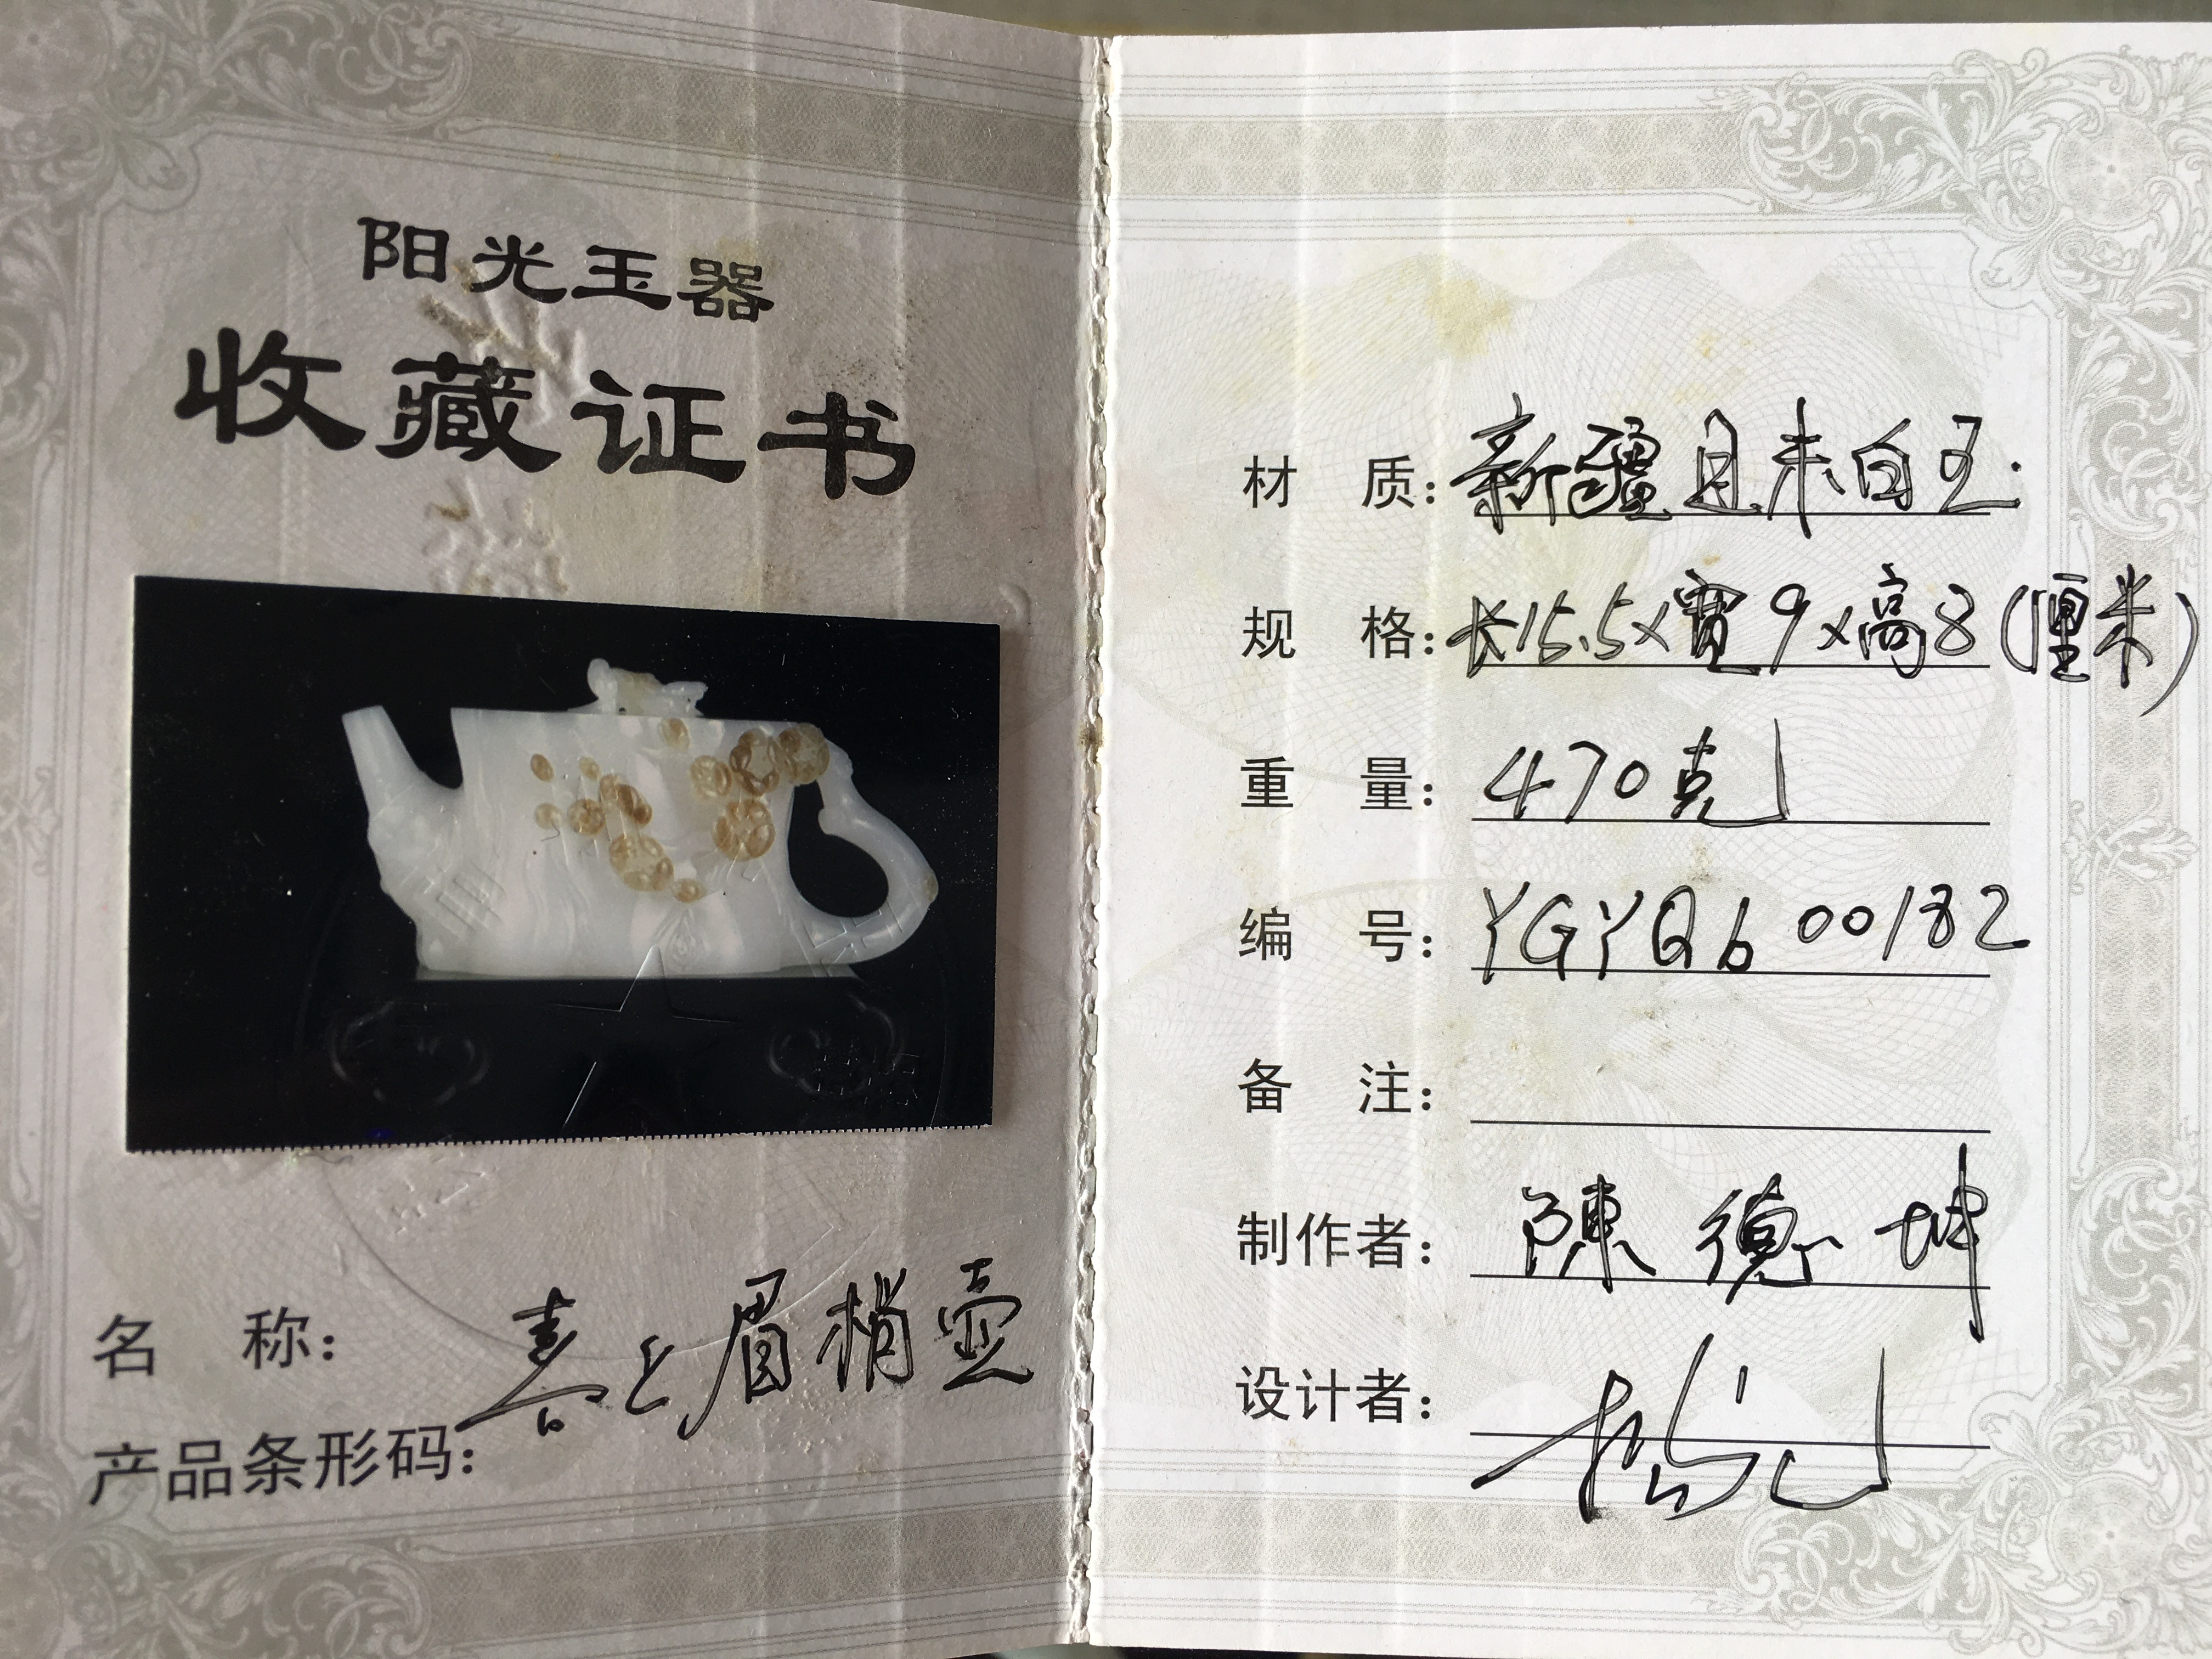 阳光玉器
收藏证书
名 称：喜上眉梢壶
产品条形码：
材 质：新疆且末白玉.
规 格：长15.5×宽9×高8(厘米)
重 量：470克
编 号：YGYQb 00182
备 注：
制作者：陳德坤
设计者：